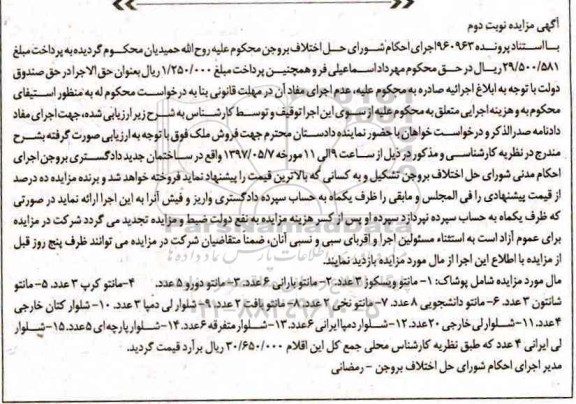 آگهی مزایده نوبت دوم
با استناد پرونده ۹۶۰۹۶۳ اجرای احکام شورای حل اختلاف بروجن محکوم علیه روح الله حمیدیان محکوم گردیده به پرداخت مبلغ
۲۹/۵۰۰/۵۸۱ ریال در حق محکوم مهرداد اسماعیلی فر و همچنین پرداخت مبلغ ۱/۲۵۰/۰۰۰ ریال بعنوان حق الاجرا در حق صندوق
دولت با توجه به ابلاغ اجرائیه صادره به محکوم علیه، عدم اجرای مفاد آن در مهلت قانونی بنا به درخواست محکوم له به منظور استیفای
محکوم به و هزینه اجرایی متعلق به محکوم علیه از سوی این اجرا توقیف و توسط کارشناس به شرح زیر ارزیابی شده، جهت اجرای مفاد
دادنامه صدرالذکر و درخواست خواهان با حضور نماینده دادستان محترم جهت فروش ملک فوق با توجه به ارزیابی صورت گرفته بشرح
مندرج در نظریه کارشناسی و مذکور در ذیل از ساعت ۹ الی ۱۱ مورخه ۱۳۹۷/۰۵/۷ واقع در ساختمان جدید دادگستری بروجن اجرای
احکام مدنی شورای حل اختلاف بروجن تشکیل و به کسانی که بالاترین قیمت را پیشنهاد نماید فروخته خواهد شد و برنده مزایده ده درصد
از قیمت پیشنهادی را فی المجلس و مابقی را ظرف یکماه به حساب سپرده دادگستری واریز و فیش آنرا به این اجرا ارائه نماید در صورتی
که ظرف یکماه به حساب سپرده نپردازد سپرده او پس از کسر هزینه مزایده به نفع دولت ضبط و مزایده تجدید می گردد شرکت در مزایده
برای عموم آزاد است به استثناء مسئولین اجرا و اقربای سببی و نسبی آنان، ضمنا متقاضیان شرکت در مزایده می توانند ظرف پنج روز قبل
از مزایده با اطلاع این اجرا از مال مورد مزایده بازدید نمایند.
مال مورد مزایده شامل پوشاک: ۱- مانتو ویسکوز ۷ عدد، ۲- مانتو بارانی ۶ عدد، ۳- مانتو دورو ۵ عدد، ۴- مانتو کرپ ۳ عدد، ۵- مانتو
شانتون ۳ عدد، ۶- مانتو دانشجویی ۸ عدد، ۷- مانتو نخی ۲ عدد، ۸- مانتو بافت ۲ عدد، ۹- شلوار لی دمپا ۳ عدد، ۱۰- شلوار کتان خارجی
۴ عدد، ۱۱- شلوار لی خارجی ۲۰ عدد، ۱۲- شلوار دمپا ایرانی ۶ عدد، ۱۳- شلوار متفرقه ۶ عدد، ۱۴- شلوار پارچه ای ۵ عدد، ۱۵- شلوار
لی ایرانی ۴ عدد که طبق نظریه کارشناس محلی جمع کل این اقلام ۳۰/۶۵۰/۰۰۰ ریال برآرد قیمت گردید.
مدیر اجرای احکام شورای حل اختلاف بروجن - رمضانی